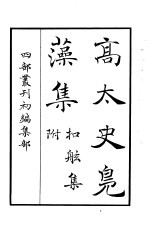 高太史鳧
藻集
附扣舷集
四部叢刊初編集部